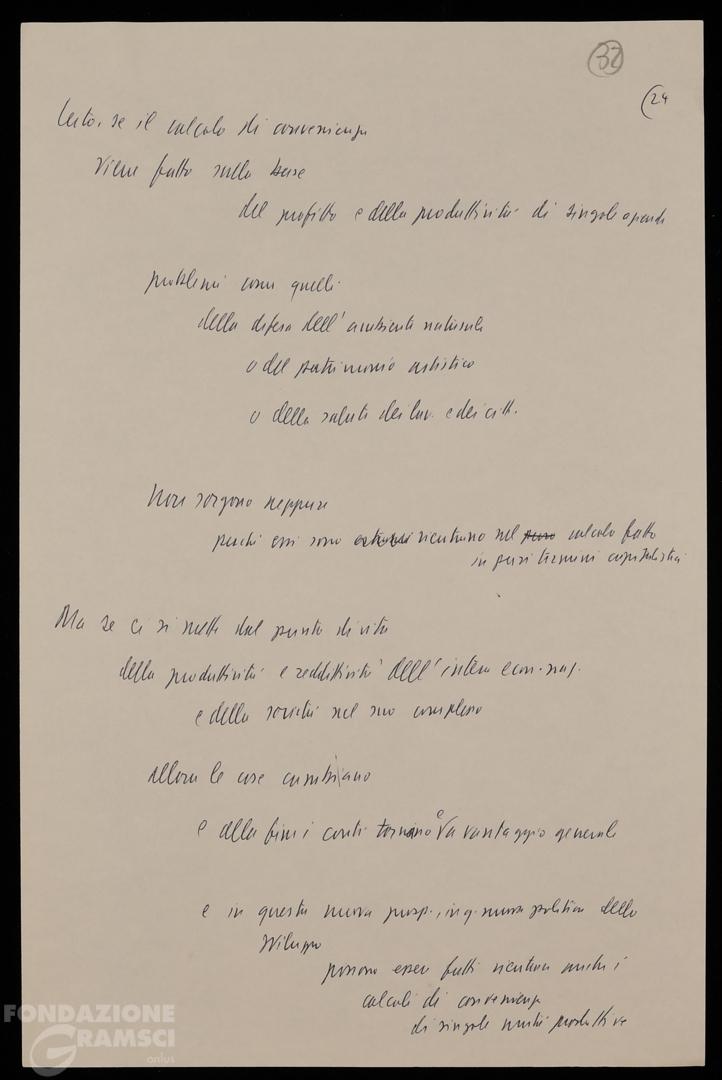 32
(24
Certo, se il calcolo di convenienza
viene fatto sulla base
del profitto e della produttività di singole aziende
problemi come quelli
della difesa dell'ambiente naturale
o del patrimonio artistico
o della salute dei lav. e dei citt.
Non sorgono neppure
perché essi sono rientrano nel puro calcolo fatto
in puri termini capitalistici
Ma se ci si mette dal punto di vista
della produttività e redditività dell'intera econ. naz.
e della società nel suo complesso
allora le cose cambiano
e alla fine i conti tornano e a vantaggio generale
e in questa nuova prosp., in q. nuova politica dello
sviluppo
possono essere fatti rientrare anche i
calcoli di convenienza
di singole unità produttive
FONDAZIONE
GRAMSCI
onlus